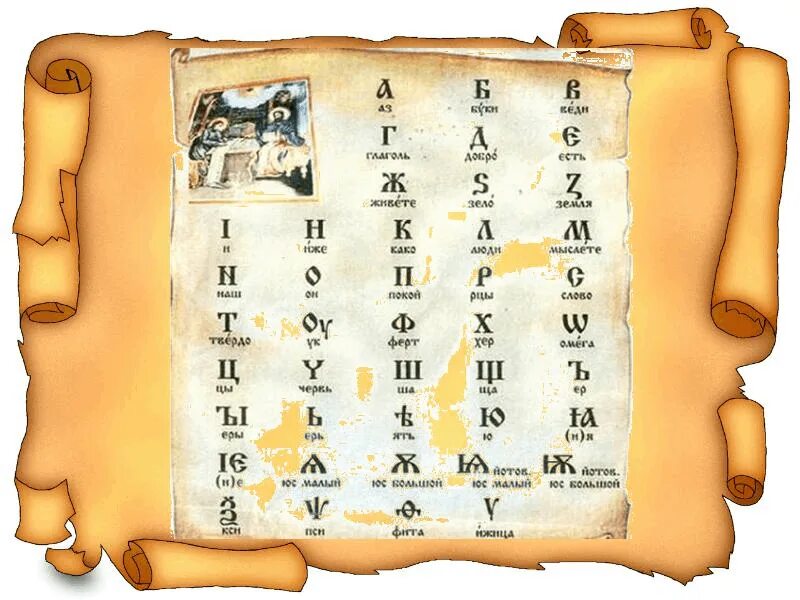 А Б В
аз бу́ки ве́ди
Г Д Є
глаголь добро́ есть
Ж Ѕ З
живе́те зело́ земля
І Н К Л М
и и́же како люди мысле́те
N О П Р С
наш он покой рцы слово
Т Оу Ф Х Ѡ
тве́рдо ук ферт хер оме́га
Ц Ч Ш Щ Ъ
цы червь ша ща ер
ЪІ Ь Ѣ Ю ІА
еры ерь ять ю (и)я
ІЄ Ѧ Ѫ Ѩ йотов. Ѭ йотов.
(и)е юс малый юс большой юс малый юс большой
Ѯ Ѱ Ѳ Ѵ
кси пси фита и́жица